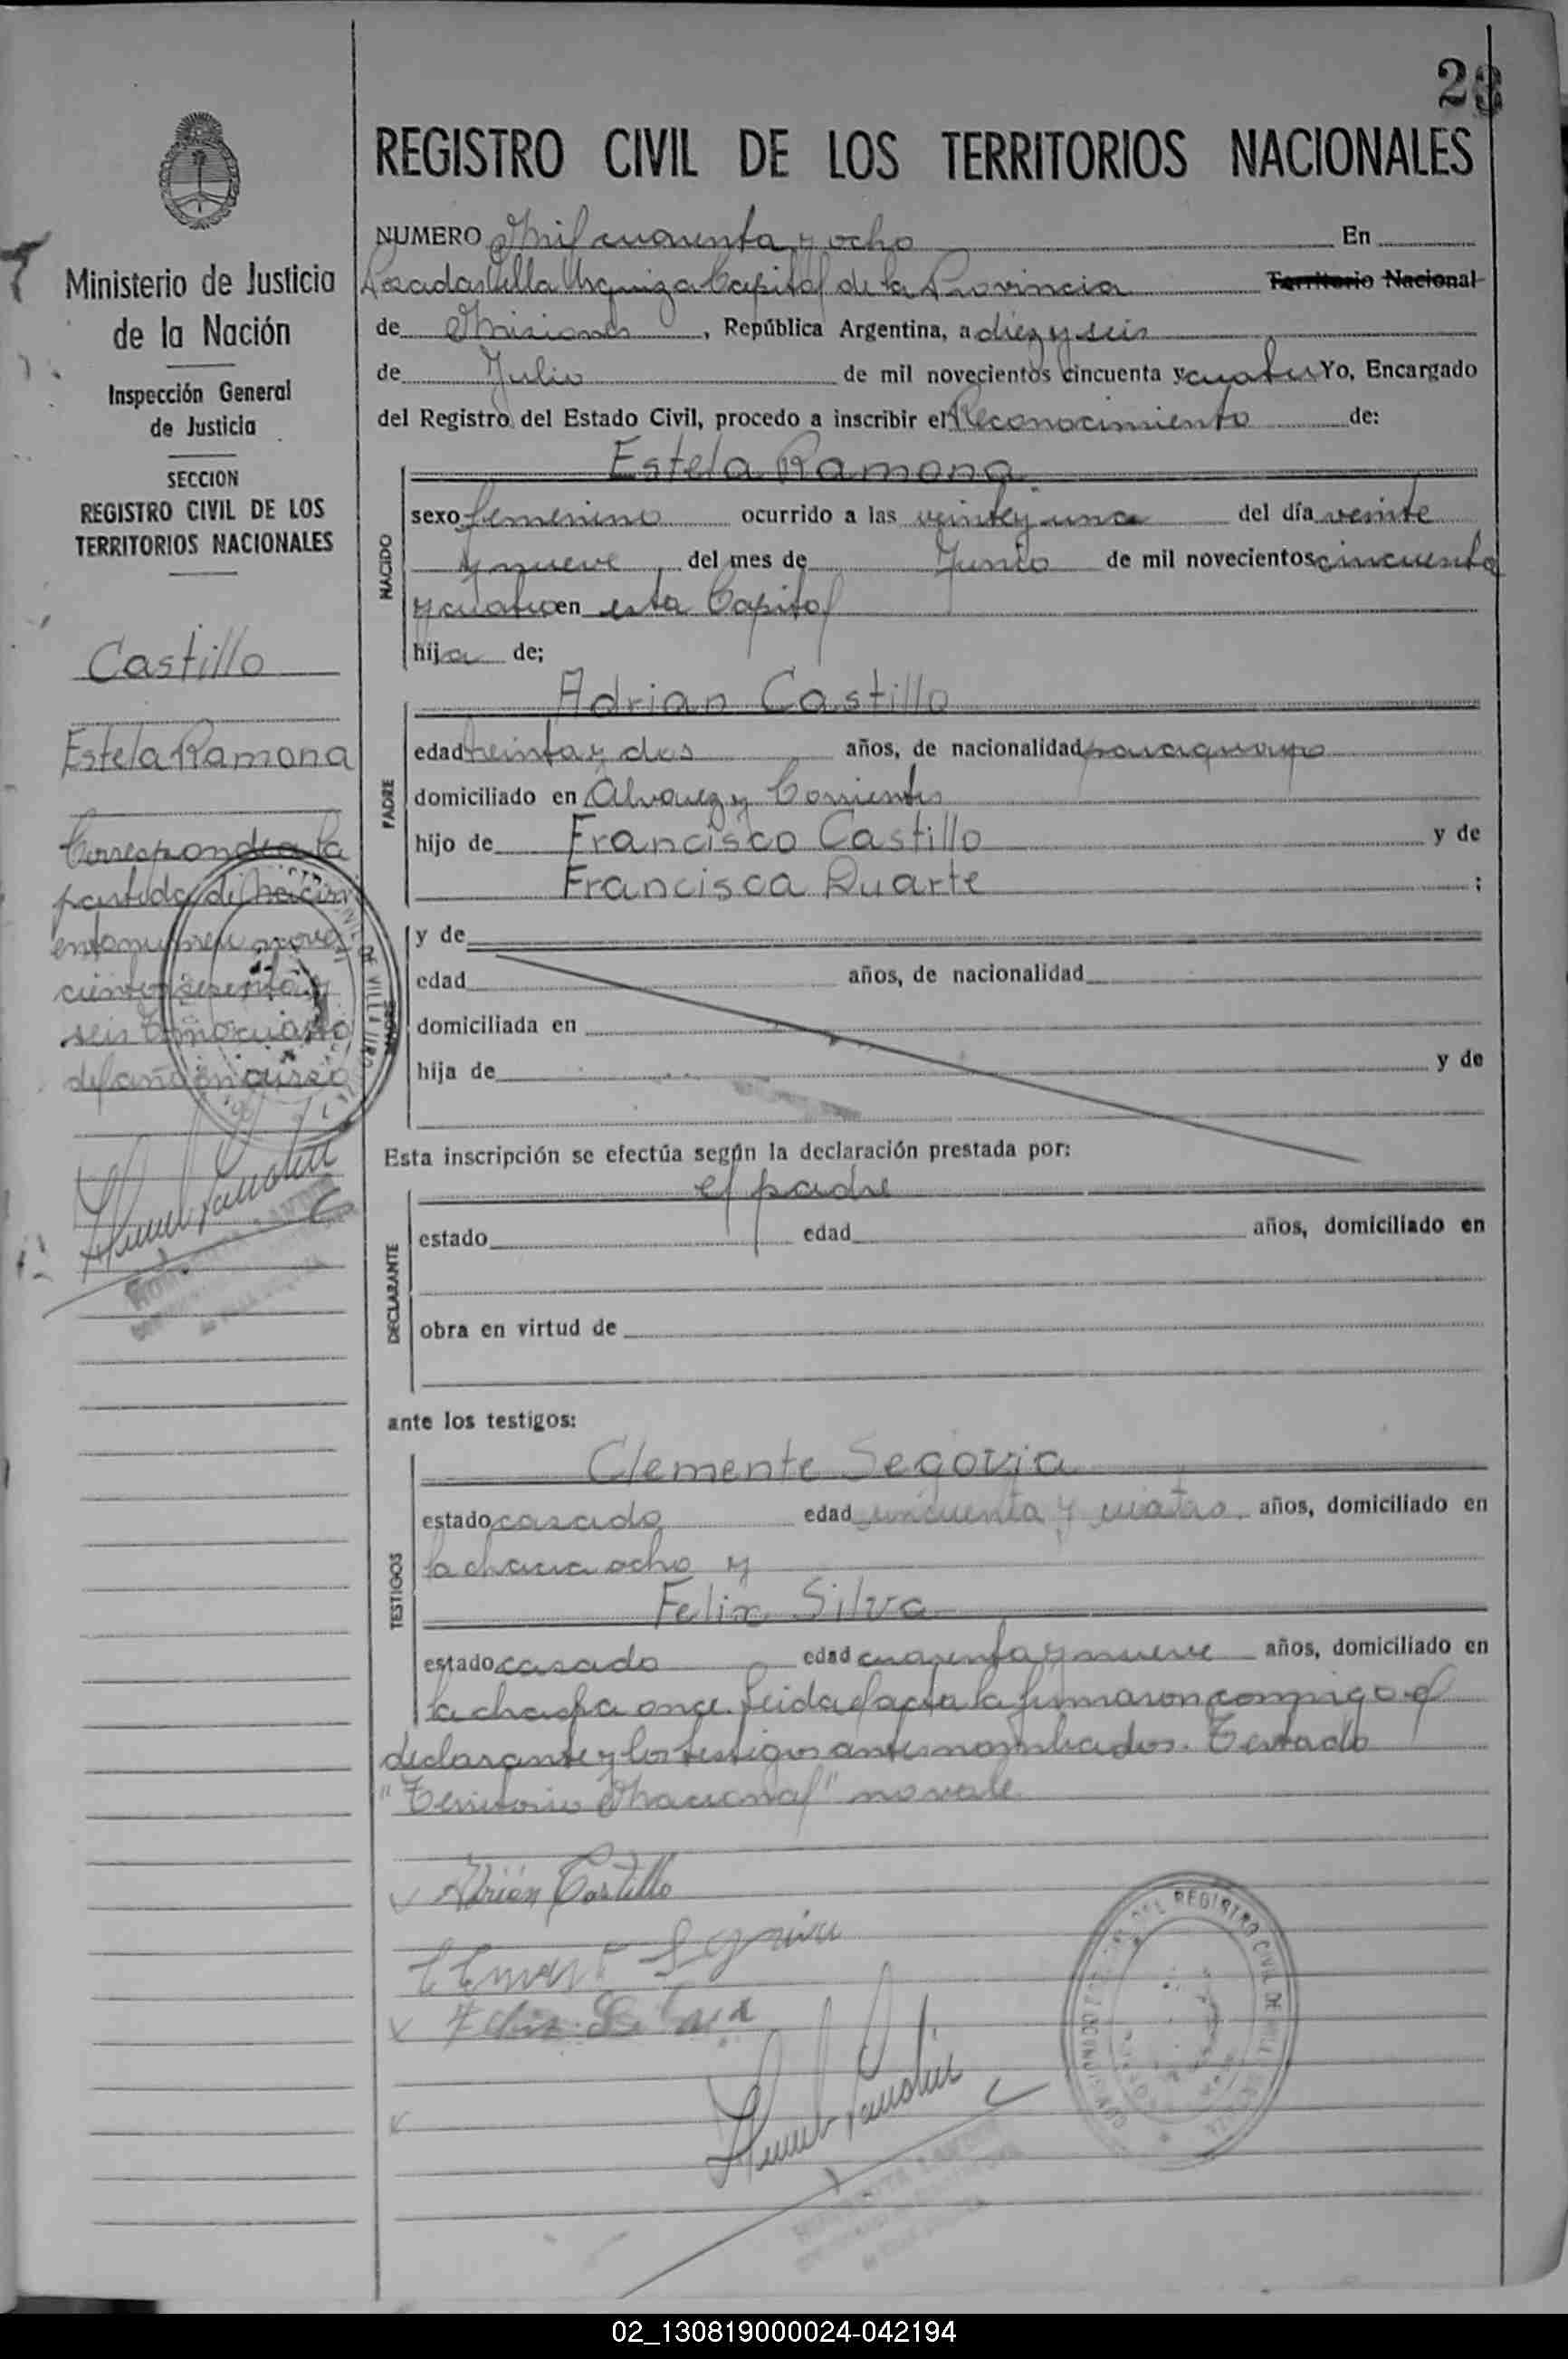 23
REGISTRO CIVIL DE LOS TERRITORIOS NACIONALES
Ministerio de Justicia
de la Nación
Inspección General
de Justicia
SECCION
REGISTRO CIVIL DE LOS
TERRITORIOS NACIONALES
Castillo
Estela Ramona
Corresponde a la
partida de Nacimi
ento numero nove
cientos sesenta y
seis Tomo cuarto
del año en curso
NUMERO Mil cuarenta y ocho En
Posadas Villa Urquiza Capital de la Provincia Territorio Nacional
de Misiones, República Argentina, a diez y seis
de Julio de mil novecientos cincuenta y cuatro Yo, Encargado
del Registro del Estado Civil, procedo a inscribir el Reconocimiento de:
Estela Ramona
NACIDO
sexo femenino ocurrido a las veinte y una del día veinte
y nueve del mes de Junio de mil novecientos cincuenta
y cuatro en esta Capital
hija de;
Adrian Castillo
PADRE
edad treinta y dos años, de nacionalidad paraguayo
domiciliado en Alvarez y Corrientes
hijo de Francisco Castillo y de
Francisca Duarte ;
MADRE
y de
edad años, de nacionalidad
domiciliada en
hija de y de
Esta inscripción se efectúa según la declaración prestada por:
el padre
DECLARANTE
estado edad años, domiciliado en
obra en virtud de
ante los testigos:
Clemente Segovia
TESTIGOS
estado casado edad cincuenta y cuatro años, domiciliado en
la chacra ocho y
Felix Silva
estado casado edad cuarenta y nueve años, domiciliado en
la chacra once. Leida el acta la firmaron conmigo el
declarante y los testigos antes nombrados. Testado
"Territorio Nacional" no vale
Adrián Castillo
Felix Silva
DEL REGISTRO CIVIL DE
02_130819000024-042194